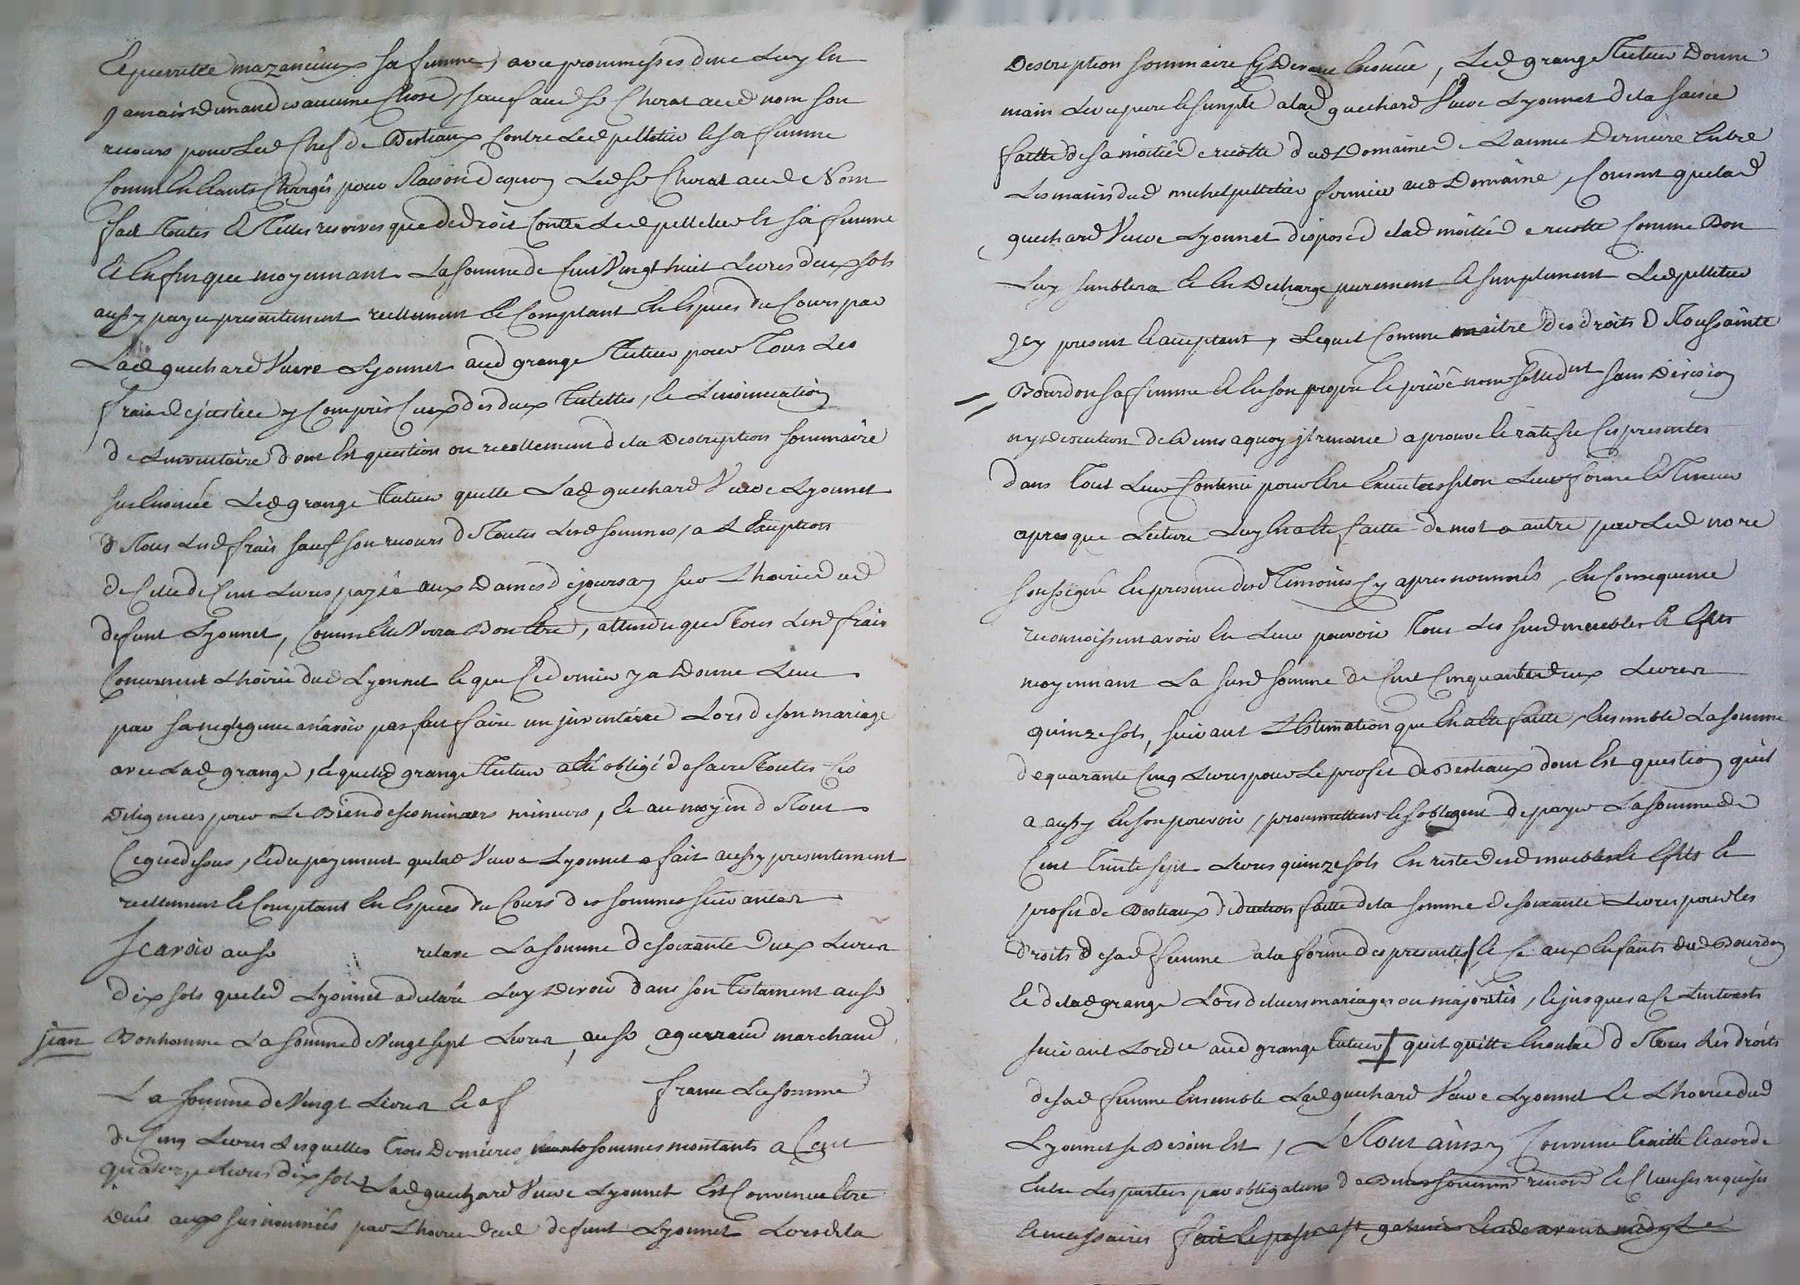 Et pierrette mazancieux sa femme, avec prommesses de ne Luy En
Jamais demander aucune Chose, sauf aud. Sr Chorat aud. nom son
recours pour Led. Chef de Bestiaux Contre Led. pelletier et sa femme
Comme En Etants Chargés pour Raison de quoy Led. Sr Chorat aud. Nom
fait Toutes et Telles reserves que de droit Contre Led. pelletier Et sa femme
Et Enfin que moyennant La somme de Vingt huit Livres deux sols
aussy payée presentement reellement Et Comptant En Espèces du Cours par
Lad. guichard Vueve Lyonnet aud. grange Tuteur pour Tous Les
frais de justice y Compris Ceux des deux Tutelles, et Linsinuation
de Linventaire dont Est question ou recollement de la Description sommaire
sus Enoncée Led. grange Tuteur quitte Lad. guichard Vueve Lyonnet
de Tous Lesd. frais sauf son recours de Toutes Lesd. sommes, a L'Exeption
de Celle de Cent Livres payée aux Dames de joursay sur L'hoirie dud.
defunt Lyonnet, Comme Elle Verra Bon Etre, attendu que Tous Lesd. frais
Concernent L'hoirie dud. Lyonnet Et que Ce dernier y a Donné Lieu
par sa negligence a n'avoir pas fait faire un jnventaire Lors de son mariage
avec Lad. grange, Lequel d. grange Tuteur a Eté obligé de faire Toutes Ces
Diligences pour Le Bien de ses mineurs, Et au moyen de Tout
Ce que dessus, Et du payement que lad. Vueve Lyonnet a fait aussy presentement
reellement Et Comptant En Espèces du Cours des sommes suivantes
Scavoir au Sr relave La somme de soixante deux Livres
dix sols que led. Lyonnet a declaré Luy Devoir dans son Testament au Sr
jean Bonhomme La somme de Vingt sept Livres, au Sr aguerraud marchand
La somme de Vingt Livres Et a f france La somme
de Cinq Livres Lesquelles Trois Dernieres sommes montants a Cent
quatorze Livres dix sols Lad. guichard Vueve Lyonnet Est Convenue Etre
Dues aux susnommés par L'hoirie dud. defunt Lyonnet Lors de la
Description sommaire Cy Devant Enoncée, Led. grange Tuteur Donne
main Levée pure Et simple a lad. guichard Vueve Lyonnet de la saisie
faitte de sa moitié de recolte dud. Domaine de L'année Derniere Entre
Les mains dud. michel pelletier fermier dud. Domaine, Consent que lad.
guichard Vueve Lyonnet dispose de lad. moitié de recolte Comme Bon
Luy semblera Et En Decharge purement Et simplement Led. pelletier
Jcy present Et acceptant, Lequel Comme maitre des droits de Toussainte
Bourdon sa femme Et En son propre Et privé nom sans Division
ny Discution de Biens a quoy jl renonce aprouve Et ratifie Ces presentes
dans Tout Leur Contenu pour Etre Executées selon Leur forme Et Teneur
apres que Lecture Luy En a Eté faitte de mot a autre par Led. no.re
soussigné En presence desd. Temoins Cy apres nommés, En Consequence
reconnoissent avoir En Leur pouvoir Tous Les susd. meubles Et Effets
moyennant La susd. somme de Cent Cinquante deux Livres
quinze sols, suivant L'Estimation que En a Eté faitte, Ensemble La somme
de quarante Cinq Livres pour Le profit de Bestiaux dont Est question qu'il
a aussy En son pouvoir, promettent Et s'obligent de payer La somme de
Cent Trente sept Livres quinze sols En reste desd. meubles Et Effets Et
profit de Bestiaux deduction faitte de la somme de soixante Livres pour Les
droits de sad. femme a la forme des presentes, Et Ce aux Enfants dud. Bourdon
Et de lad. grange Lors de Leurs mariages ou majorités, Et jusques a Ce Linterets
suivant Lordre aud. grange Tuteur qui quitte En outre de Tous Les droits
de sad. femme Ensemble Lad. guichard Vueve Lyonnet Et L'hoirie dud.
Lyonnet si Besoin Est, Le Tout ainsy Convenu Traitté Et acordé
Entre Les parties par obligations de Biens renon.on Et Clauses requises
Et necessaires